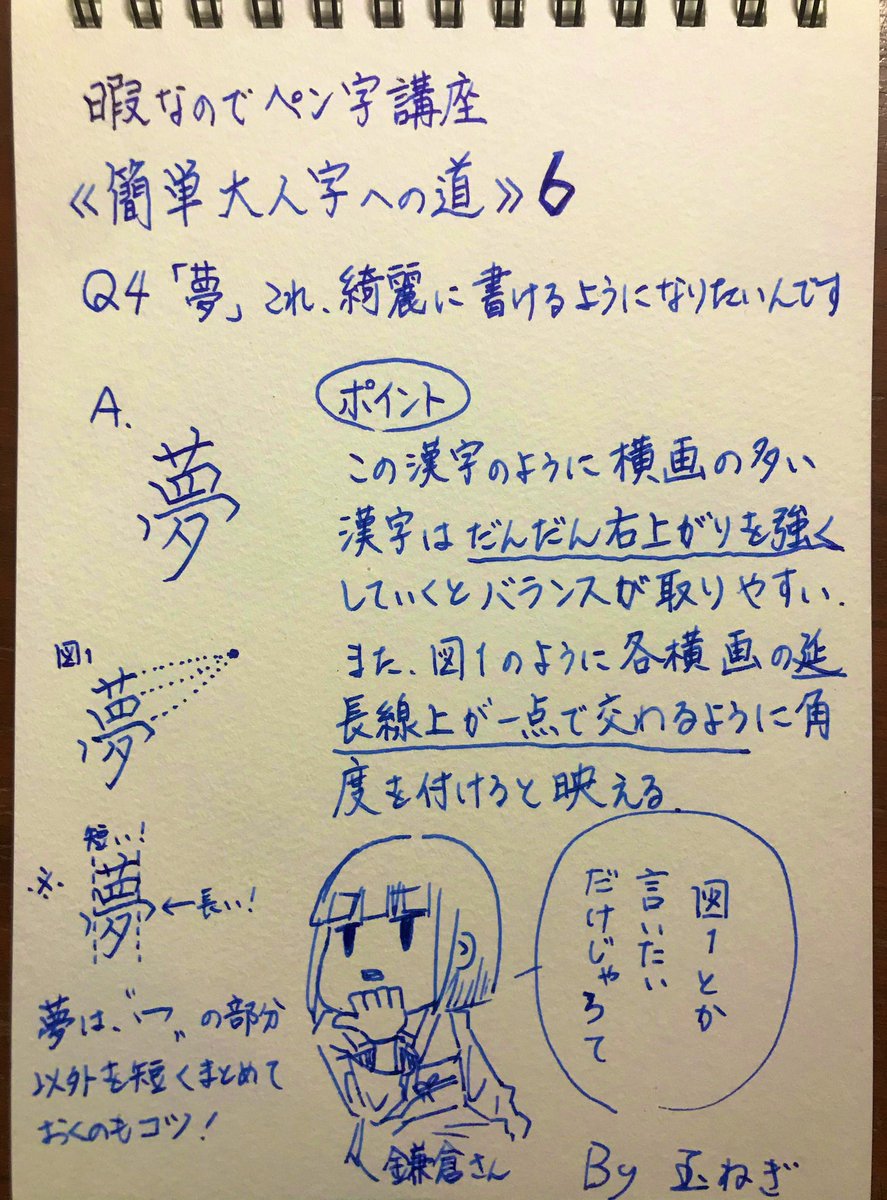 暇なのでペン字講座
《簡単大人字への道》6
Q4「夢」これ、綺麗に書けるようになりたいんです
A.
夢
ポイント
この漢字のように横画の多い
漢字はだんだん右上がりを強く
していくとバランスが取りやすい.
また、図1のように各横画の延
長線上が一点で交わるように角
度を付けると映える.
図1
夢
※
短い!
夢
←長い!
夢は、"冖"の部分
以外を短くまとめて
おくのもコツ!
図1とか
言いたい
だけじゃろて
鎌倉さん
By 玉ねぎ